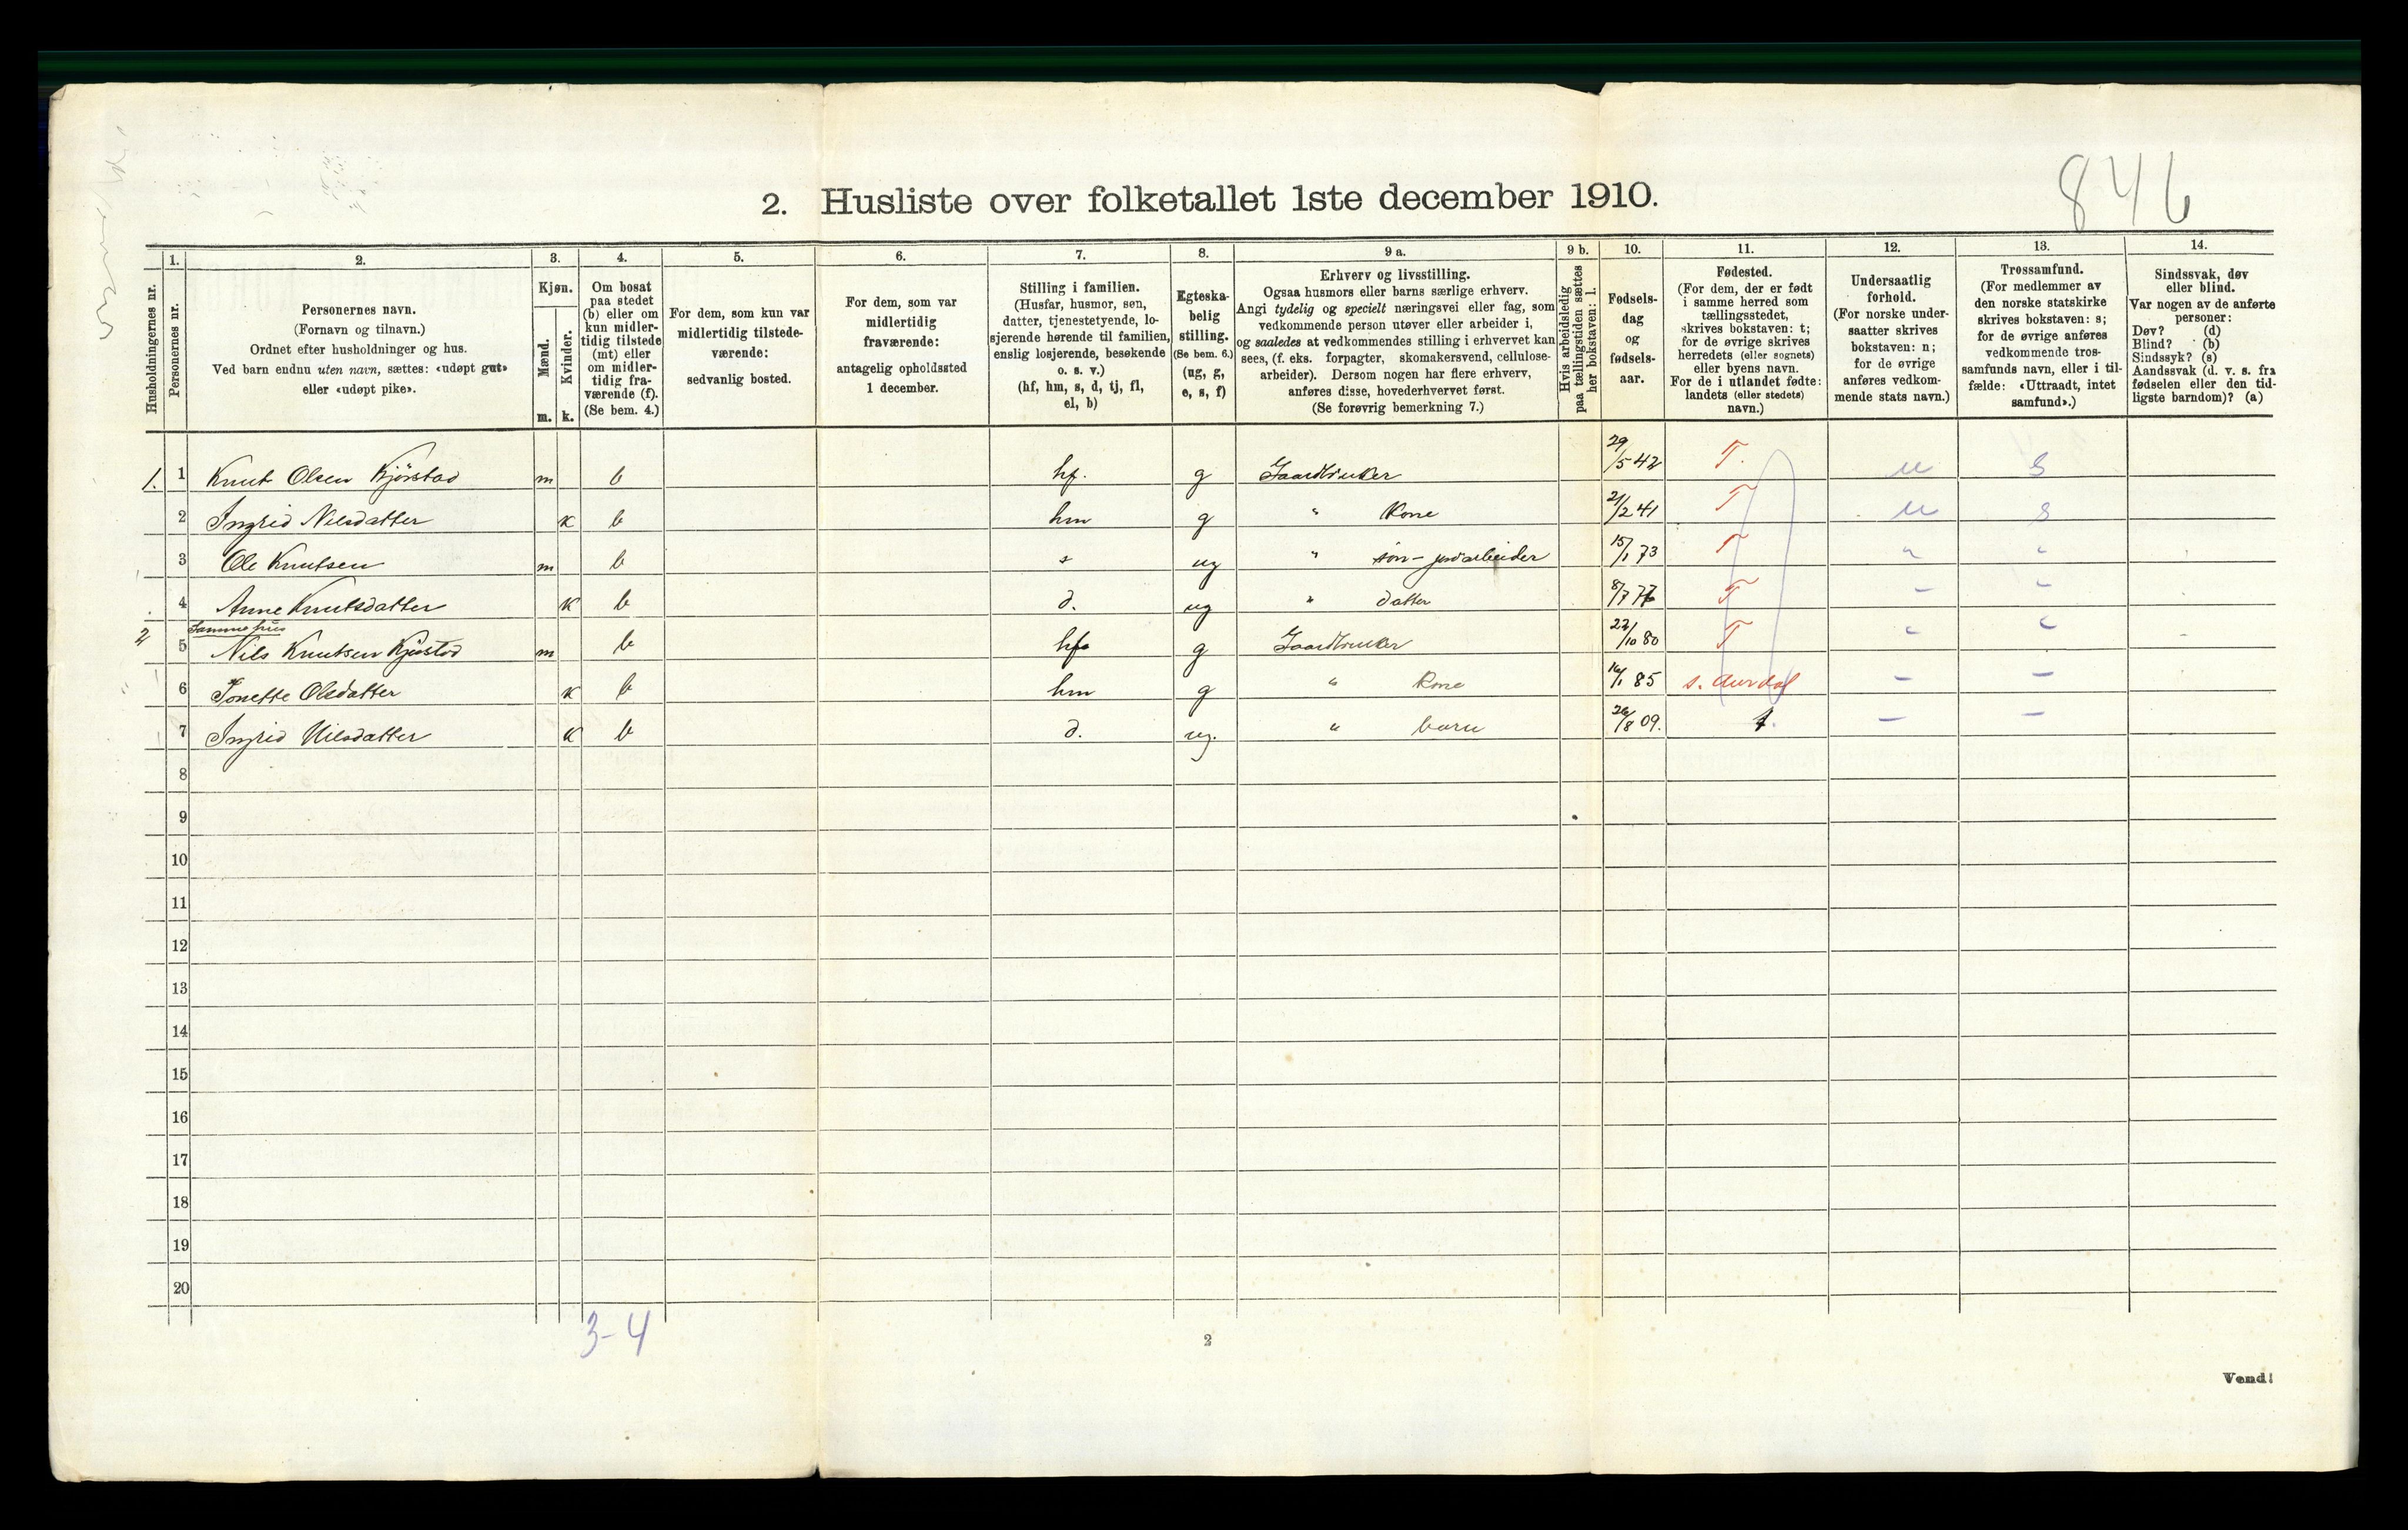 846
2. Husliste over folketallet 1ste december 1910.
Husholdningernes nr.
1.
Personernes nr.
2.
Personernes navn.
(Fornavn og tilnavn.)
Ordnet efter husholdninger og hus.
Ved barn endnu uten navn, sættes: «udøpt gut»
eller «udøpt pike».
3.
Kjøn.
Mænd.
m.
Kvinder.
k.
4.
Om bosat
paa stedet
(b) eller om
kun midler-
tidig tilstede
(mt) eller
om midler-
tidig fra-
værende (f).
(Se bem. 4.)
5.
For dem, som kun var
midlertidig tilstede-
værende:
sedvanlig bosted.
6.
For dem, som var
midlertidig
fraværende:
antagelig opholdssted
1 december.
7.
Stilling i familien.
(Husfar, husmor, søn,
datter, tjenestetyende, lo-
sjerende hørende til familien,
enslig losjerende, besøkende
o. s. v.)
(hf, hm, s, d, tj, fl,
el, b)
8.
Egteska-
belig
stilling.
(Se bem. 6.)
(ug, g,
e, s, f)
9 a.
Erhverv og livsstilling.
Ogsaa husmors eller barns særlige erhverv.
Angi tydelig og specielt næringsvei eller fag, som
vedkommende person utøver eller arbeider i,
og saaledes at vedkommendes stilling i erhvervet kan
sees, (f. eks. forpagter, skomakersvend, cellulose-
arbeider). Dersom nogen har flere erhverv,
anføres disse, hovederhvervet først.
(Se forøvrig bemerkning 7.)
9 b.
Hvis arbeidsledig
paa tællingstiden sættes
her bokstaven: l.
10.
Fødsels-
dag
og
fødsels-
aar.
11.
Fødested.
(For dem, der er født
i samme herred som
tællingsstedet,
skrives bokstaven: t;
for de øvrige skrives
herredets (eller sognets)
eller byens navn.
For de i utlandet fødte:
landets (eller stedets)
navn.)
12.
Undersaatlig
forhold.
(For norske under-
saatter skrives
bokstaven: n;
for de øvrige
anføres vedkom-
mende stats navn.)
13.
Trossamfund.
(For medlemmer av
den norske statskirke
skrives bokstaven: s;
for de øvrige anføres
vedkommende tros-
samfunds navn, eller i til-
fælde: «Uttraadt, intet
samfund».)
14.
Sindssvak, døv
eller blind.
Var nogen av de anførte
personer:
Døv? (d)
Blind? (b)
Sindssyk? (s)
Aandssvak (d. v. s. fra
fødselen eller den tid-
ligste barndom)? (a)
1. 1 Knut Olsen Kjörstad m b hf. g Gaardbruker 29/5 42 T. n s
2 Ingrid Nilsdatter k b hm g " Kone 21/2 41 T n s
3 Ole Knutsen m b s ug " sön - jordarbeider 15/1 73 T " "
4 Anne Knutsdatter k b d. ug " datter 8/7 T - -
Samme hus
2 5 Nils Knutsen m b hf g Gaardbruker 22/10 80 T " "
6 Jonette Olsdatter k b hm g " Kone 16/1 85 s. Aurdal - -
7 Ingrid Nilsdatter k b d. ug. " barn 26/8 09. t. - -
8
9
10
11
12
13
14
15
16
17
18
19
20
3-4
2
Vend!